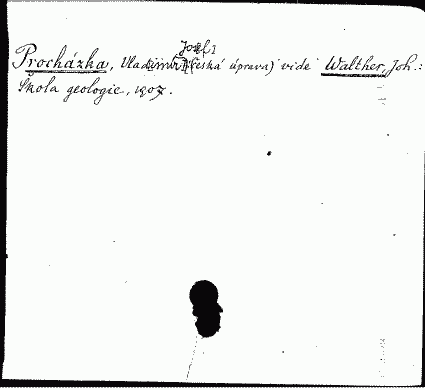 Josef
Procházka, Vladimír (česká úprava) vide Walther, Joh.:
Škola geologie, 1907.